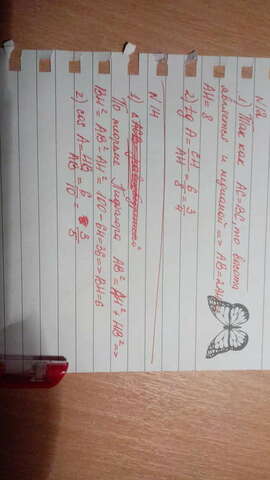 N12
1) Так как AC=BC, то высота
является и медианой => AB=2AH
AH=8
2) tg A = CH/AH = 6/8 = 3/4
N14
1)
По теореме Пифагора AB² = AH² + HB² =>
BH² = AB² - AH² = 100 - 64 = 36 => BH = 6
2) cos A = HB/AB = 6/10 = 3/5